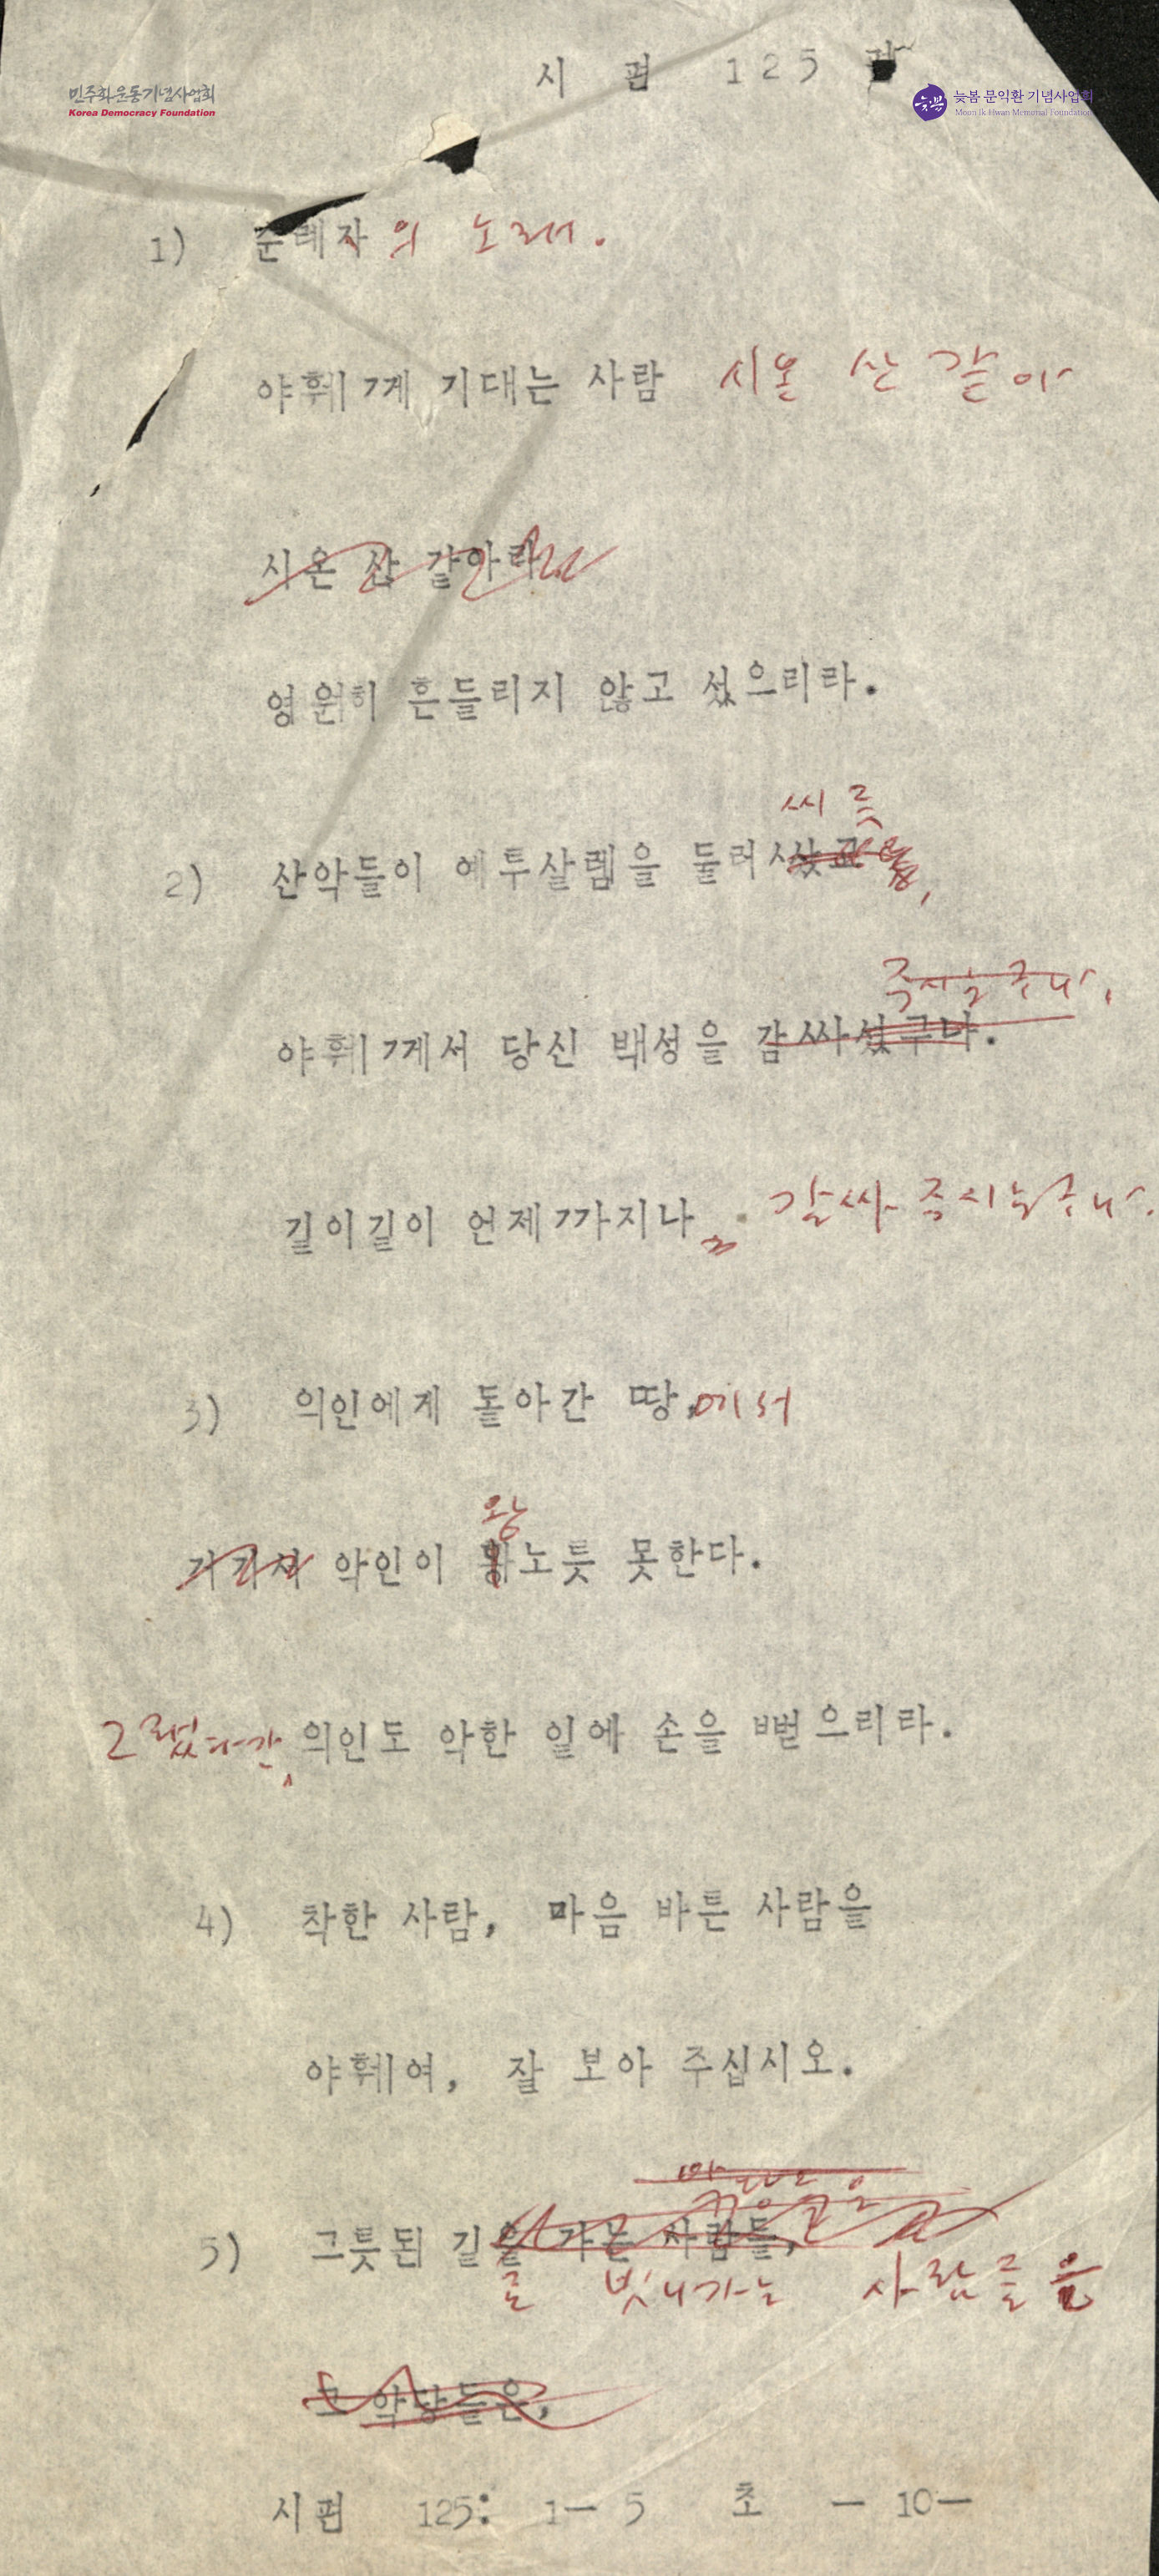 시 편 125 편
민주화운동기념사업회
Korea Democracy Foundation
늦봄 문익환 기념사업회
Moon Ik Hwan Memorial Foundation
1) 순례자의 노래.
야훼께 기대는 사람 시온 산 같아
시온 산 같아라
영원히 흔들리지 않고 섰으리라.
씨 듯
2) 산악들이 예루살렘을 둘러
주시는구나.
야훼께서 당신 백성을 감싸셨구나.
길이길이 언제까지나 감싸 주시는구나.
3) 의인에게 돌아간 땅에서
왕
악인이 노릇 못한다.
그랬다간, 의인도 악한 일에 손을 뻗으리라.
4) 착한 사람, 마음 바른 사람을
야훼여, 잘 보아 주십시오.
5) 그릇된 길을 가는 사람들,
로 빗나가는 사람들을
그 악당들은,
시편 125: 1- 5 초 - 10-